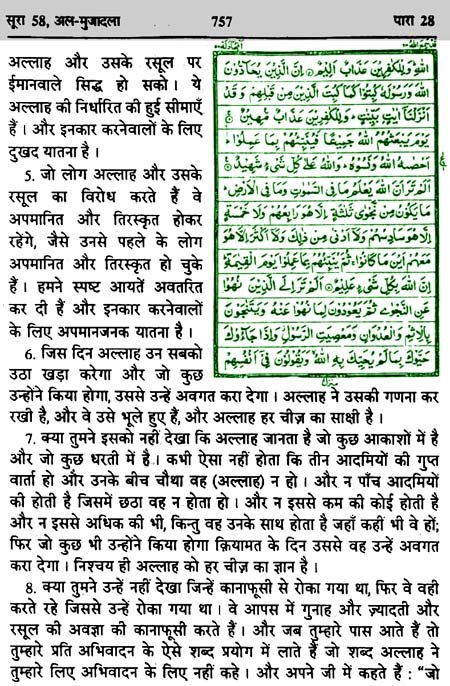 सूरा 58, अल-मुजादला 757 पारा 28
अल्लाह और उसके रसूल पर
ईमानवाले सिद्ध हो सको। ये
अल्लाह की निर्धारित की हुई सीमाएँ
हैं। और इनकार करनेवालों के लिए
दुखद यातना है।
5. जो लोग अल्लाह और उसके
रसूल का विरोध करते हैं वे
अपमानित और तिरस्कृत होकर
रहेंगे, जैसे उनसे पहले के लोग
अपमानित और तिरस्कृत हो चुके
हैं। हमने स्पष्ट आयतें अवतरित
कर दी हैं और इनकार करनेवालों
के लिए अपमानजनक यातना है।
6. जिस दिन अल्लाह उन सबको
उठा खड़ा करेगा और जो कुछ
اللهِ وَلِلْكٰفِرِيْنَ عَذَابٌ اَلِيْمٌ اِنَّ الَّذِيْنَ يُحَآدُّوْنَ
اللهَ وَرَسُوْلَهٗ كُبِتُوْا كَمَا كُبِتَ الَّذِيْنَ مِنْ قَبْلِهِمْ وَقَدْ
اَنْزَلْنَآ اٰيٰتٍۭ بَيِّنٰتٍ وَلِلْكٰفِرِيْنَ عَذَابٌ مُّهِيْنٌ
يَوْمَ يَبْعَثُهُمُ اللهُ جَمِيْعًا فَيُنَبِّئُهُمْ بِمَا عَمِلُوْا
اَحْصٰىهُ اللهُ وَنَسُوْهُ وَاللهُ عَلٰى كُلِّ شَيْءٍ شَهِيْدٌ
اَلَمْ تَرَ اَنَّ اللهَ يَعْلَمُ مَا فِي السَّمٰوٰتِ وَمَا فِي الْاَرْضِ
مَا يَكُوْنُ مِنْ نَّجْوٰى ثَلٰثَةٍ اِلَّا هُوَ رَابِعُهُمْ وَلَا خَمْسَةٍ
اِلَّا هُوَ سَادِسُهُمْ وَلَآ اَدْنٰى مِنْ ذٰلِكَ وَلَآ اَكْثَرَ اِلَّا هُوَ
مَعَهُمْ اَيْنَ مَا كَانُوْا ثُمَّ يُنَبِّئُهُمْ بِمَا عَمِلُوْا يَوْمَ الْقِيٰمَةِ
اِنَّ اللهَ بِكُلِّ شَيْءٍ عَلِيْمٌ اَلَمْ تَرَ اِلَى الَّذِيْنَ نُهُوْا
عَنِ النَّجْوٰى ثُمَّ يَعُوْدُوْنَ لِمَا نُهُوْا عَنْهُ وَيَتَنٰجَوْنَ
بِالْاِثْمِ وَالْعُدْوَانِ وَمَعْصِيَتِ الرَّسُوْلِ وَاِذَا جَآءُوْكَ
حَيَّوْكَ بِمَا لَمْ يُحَيِّكَ بِهِ اللهُ وَيَقُوْلُوْنَ فِيْٓ اَنْفُسِهِمْ
उन्होंने किया होगा, उससे उन्हें अवगत करा देगा। अल्लाह ने उसकी गणना कर
रखी है, और वे उसे भूले हुए हैं, और अल्लाह हर चीज़ का साक्षी है।
7. क्या तुमने इसको नहीं देखा कि अल्लाह जानता है जो कुछ आकाशों में है
और जो कुछ धरती में है। कभी ऐसा नहीं होता कि तीन आदमियों की गुप्त
वार्ता हो और उनके बीच चौथा वह (अल्लाह) न हो। और न पाँच आदमियों
की होती है जिसमें छठा वह न होता हो। और न इससे कम की कोई होती है
और न इससे अधिक की भी, किन्तु वह उनके साथ होता है जहाँ कहीं भी वे हों;
फिर जो कुछ भी उन्होंने किया होगा क़ियामत के दिन उससे वह उन्हें अवगत
करा देगा। निश्चय ही अल्लाह को हर चीज़ का ज्ञान है।
8. क्या तुमने उन्हें नहीं देखा जिन्हें कानाफूसी से रोका गया था, फिर वे वही
करते रहे जिससे उन्हें रोका गया था। वे आपस में गुनाह और ज़्यादती और
रसूल की अवज्ञा की कानाफूसी करते हैं। और जब तुम्हारे पास आते हैं तो
तुम्हारे प्रति अभिवादन के ऐसे शब्द प्रयोग में लाते हैं जो शब्द अल्लाह ने
तुम्हारे लिए अभिवादन के लिए नहीं कहे। और अपने जी में कहते हैं : “जो